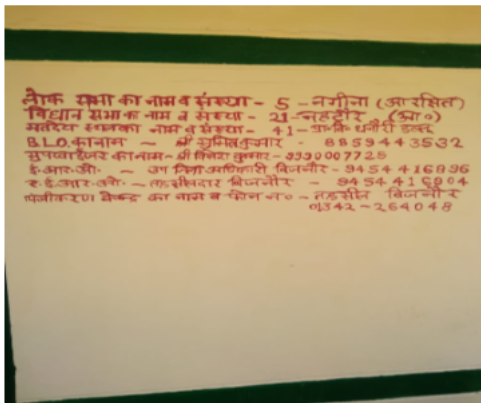 लोक सभा का नाम व संख्या - 5 - नगीना (आरक्षित)
विधान सभा का नाम व संख्या - 21 - नहटौर (आ०)
मतदेय स्थल का नाम व संख्या - 41 - प्रा० वि० धनौरी
B.L.O. का नाम ~ श्री सुमित कुमार - 8859443532
सुपरवाईजर का नाम - श्री कुमार - 9990007725
ई. आर. ओ. ~ उप जिला अधिकारी बिजनौर - 9454416896
ए. ई. आर. ओ. ~ तहसीलदार बिजनौर - 9454416904
पंजीकरण केन्द्र का नाम व फोन न० ~ तहसील बिजनौर
01342-264048